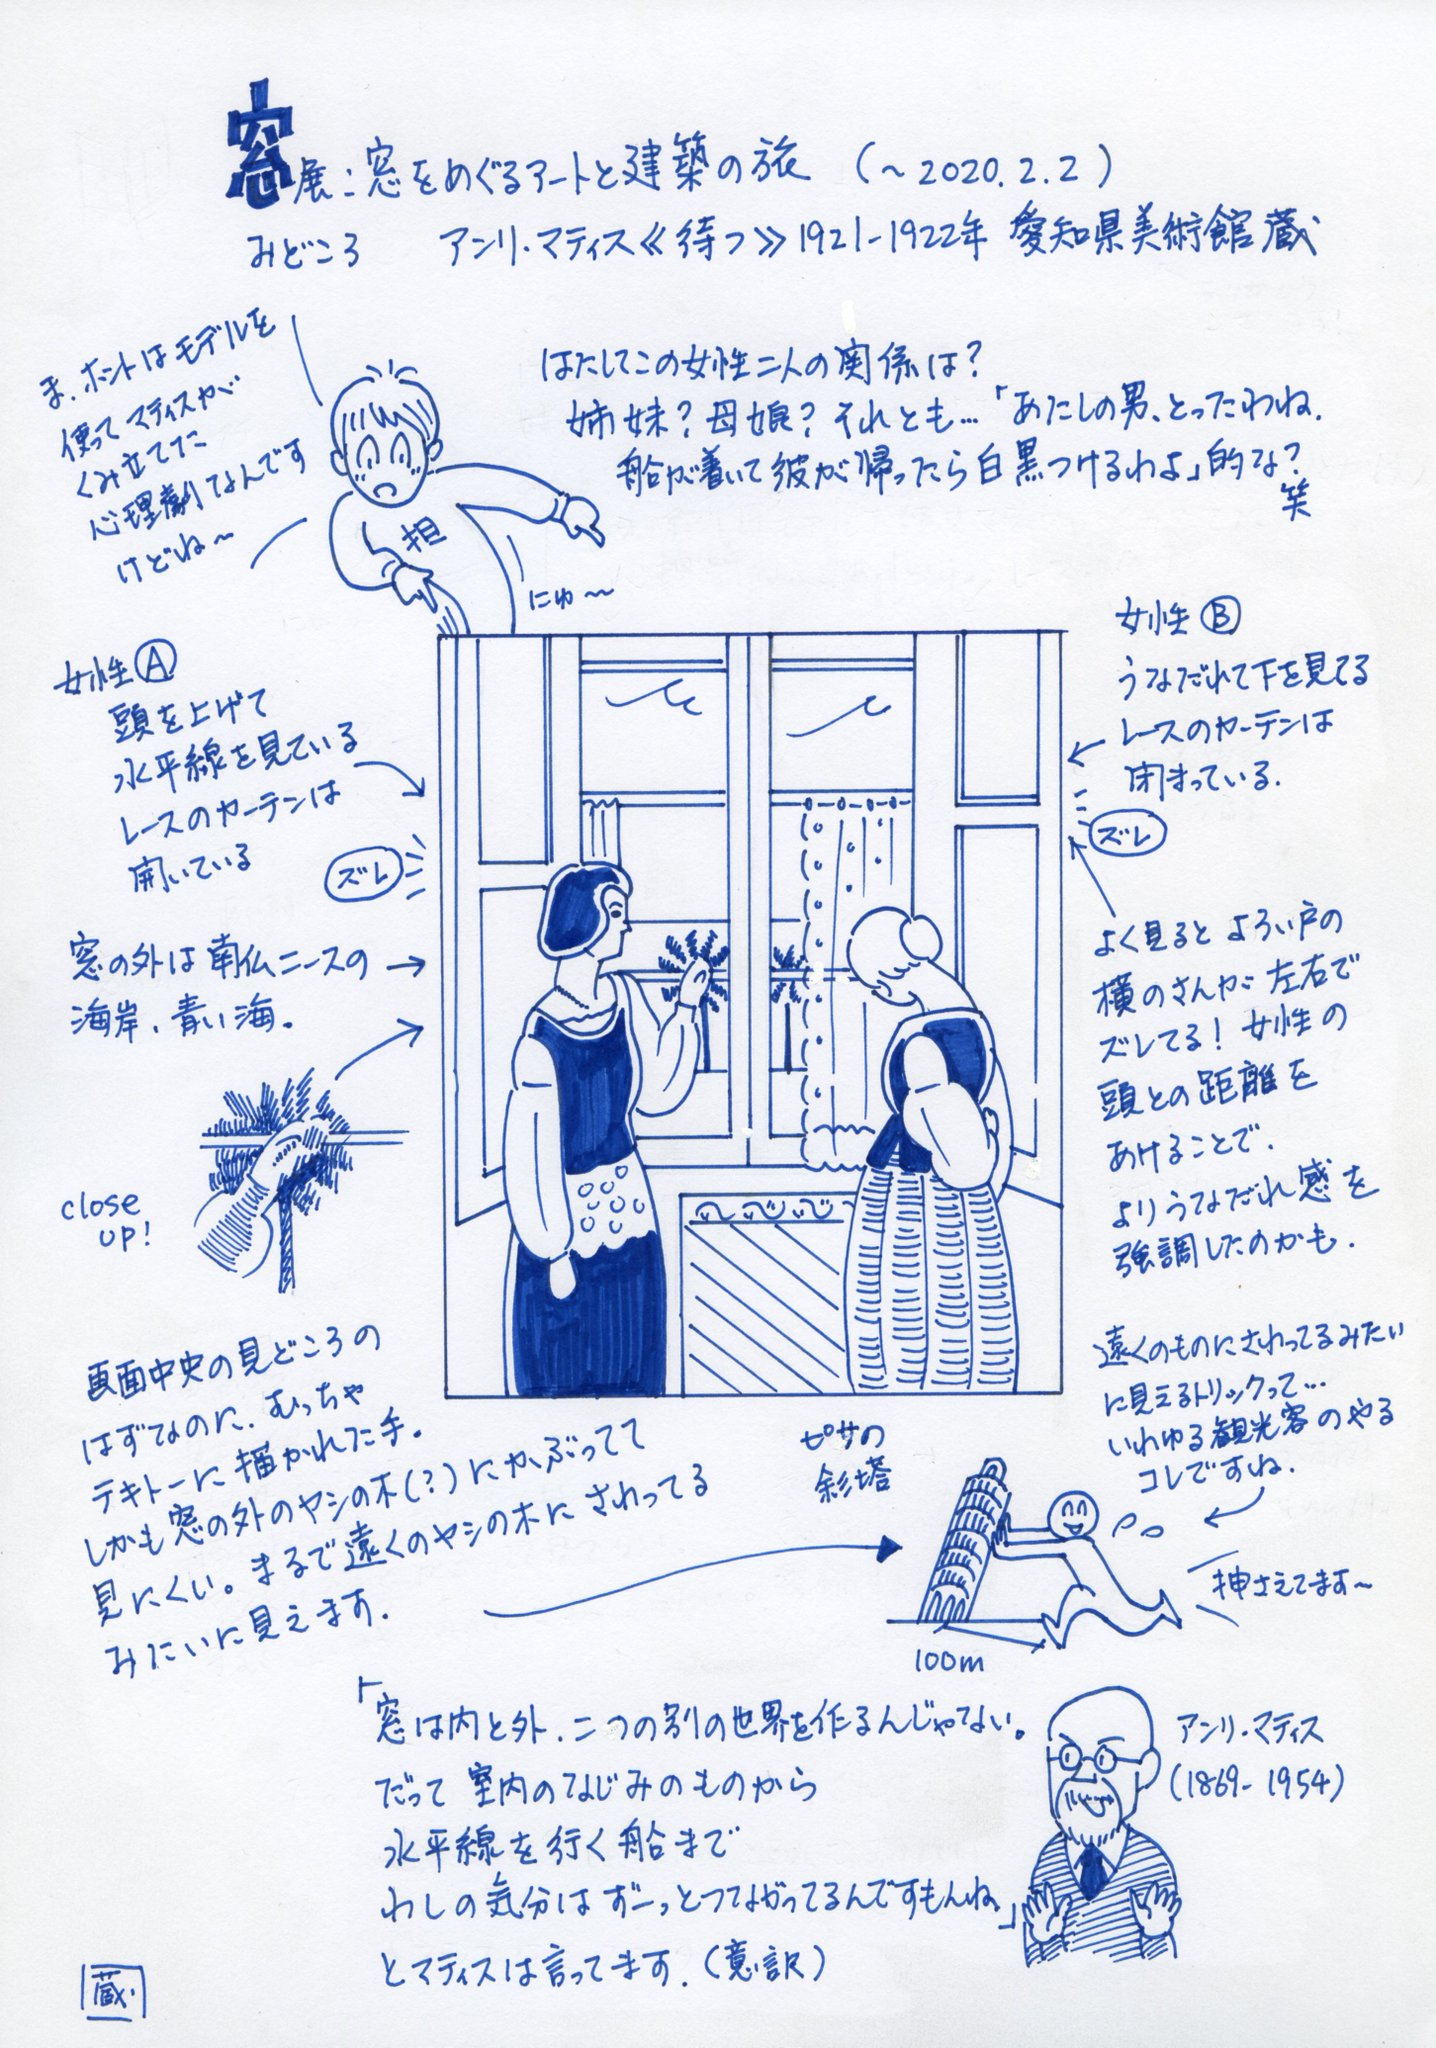 窓展：窓をめぐるアートと建築の旅 （～2020.2.2）
みどころ アンリ・マティス《待つ》1921-1922年 愛知県美術館蔵
ま、ホントはモデルを
使ってマティスが
くみ立てた
心理劇なんです
けどね～
担
にゅ～
はたしてこの女性二人の関係は？
姉妹？母娘？それとも…「あたしの男、とったわね。
船が着いて彼が帰ったら白黒つけるわよ」的な？
笑
女性Ⓐ
頭を上げて
水平線を見ている
レースのカーテンは
開いている
ズレ
女性Ⓑ
うなだれて下を見てる
レースのカーテンは
閉まっている.
ズレ
窓の外は南仏ニースの
海岸、青い海。
close
up!
よく見ると よろい戸の
横のさんが左右で
ズレてる！女性の
頭との距離を
あけることで、
よりうなだれ感を
強調したのかも.
画面中央の見どころの
はずなのに、むっちゃ
テキトーに描かれた手。
しかも窓の外のヤシの木(?)にかぶってて
見にくい。まるで遠くのヤシの木にさわってる
みたいに見えます.
遠くのものにさわってるみたい
に見えるトリックって…
いわゆる観光客のやる
コレですね.
ピサの
斜塔
押さえてます～
100m
「窓は内と外、二つの別の世界を作るんじゃない。
だって 室内のなじみのものから
水平線を行く船まで
わしの気分はずーっとつながってるんですもんね」
とマティスは言ってます.（意訳）
アンリ・マティス
(1869-1954)
蔵